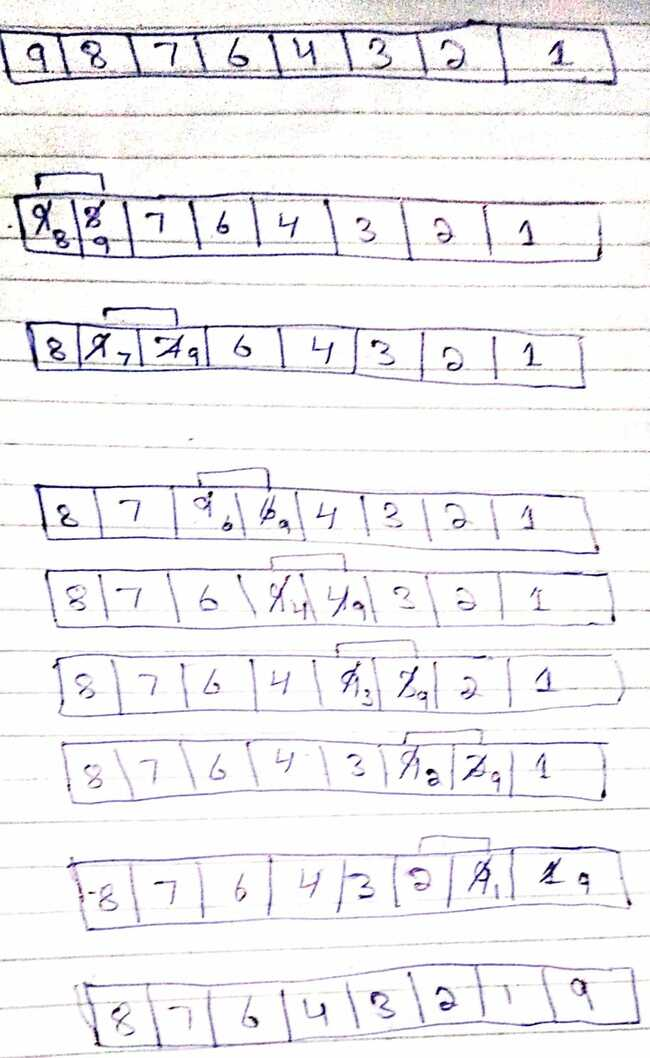 9 8 7 6 4 3 2 1
9 8 8 9 7 6 4 3 2 1
8 9 7 7 9 6 4 3 2 1
8 7 9 6 6 9 4 3 2 1
8 7 6 9 4 4 9 3 2 1
8 7 6 4 9 3 3 9 2 1
8 7 6 4 3 9 2 2 9 1
8 7 6 4 3 2 9 1 1 9
8 7 6 4 3 2 1 9